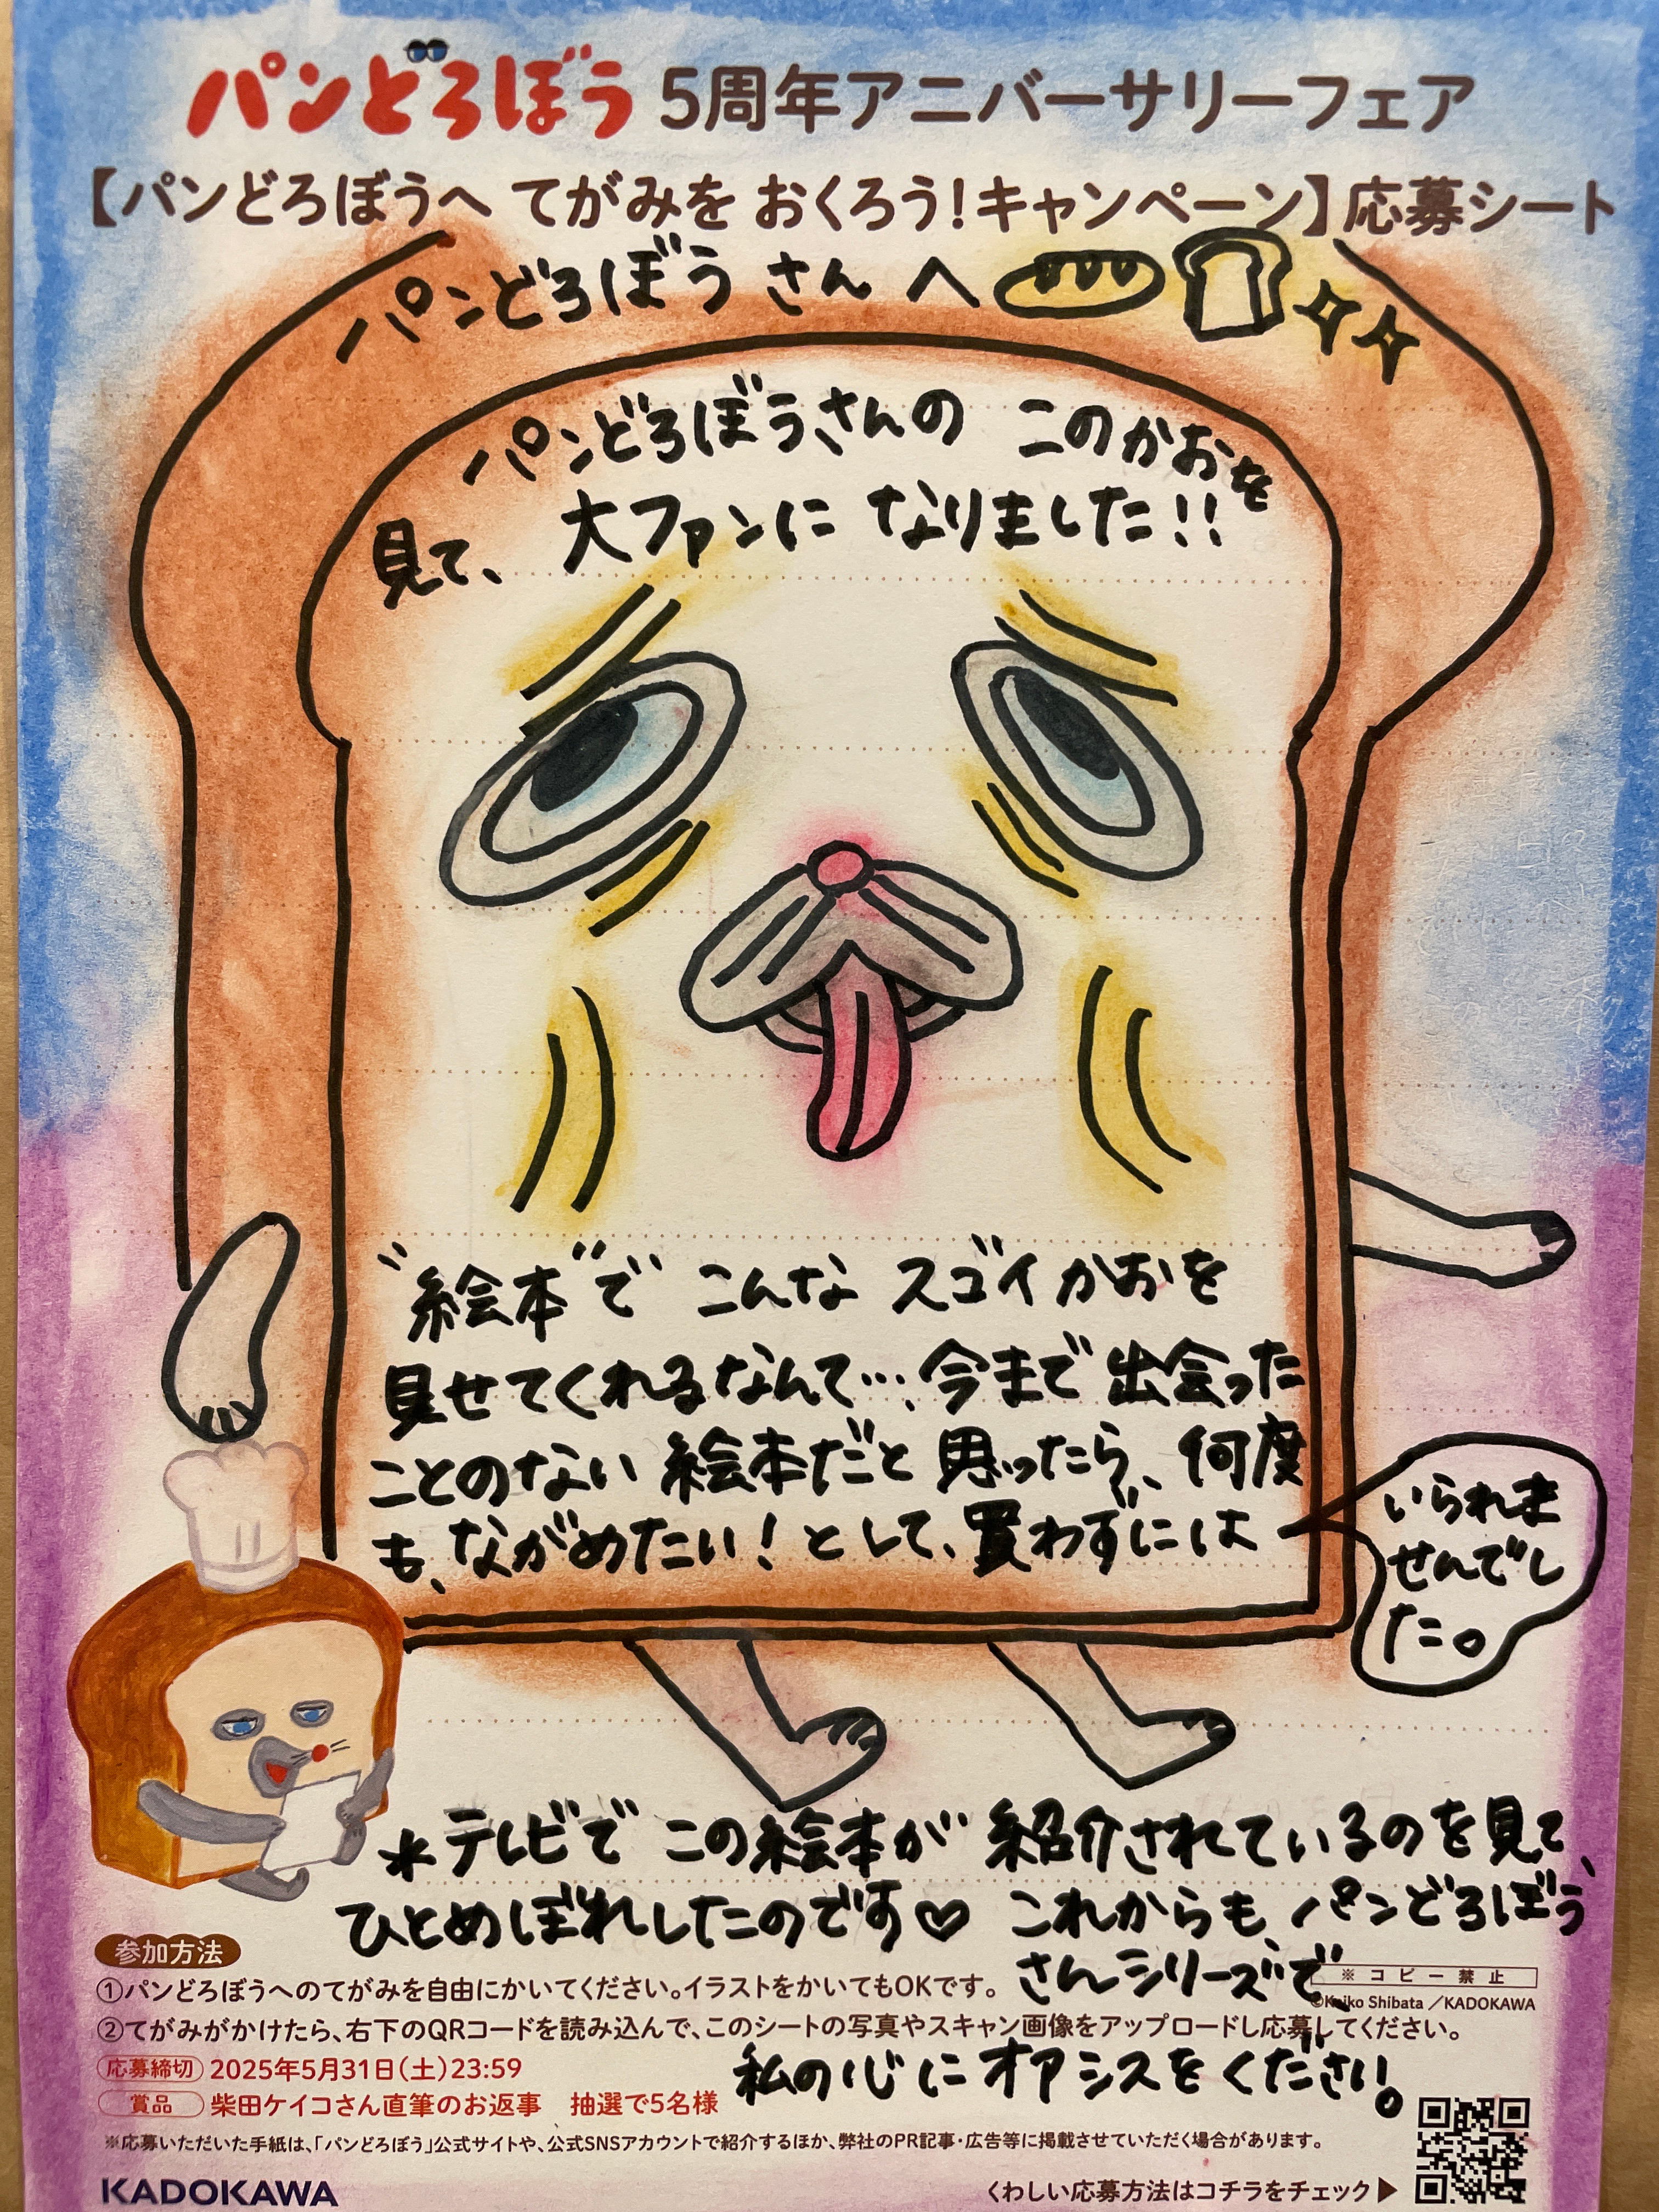 パンどろぼう 5周年アニバーサリーフェア
【パンどろぼうへ てがみを おくろう!キャンペーン】応募シート
パンどろぼう さん へ
パンどろぼうさんの このかおを
見て、大ファンに なりました!!
"絵本"で こんな スゴイかおを
見せてくれるなんて…今まで 出会った
ことのない 絵本だと 思ったら、何度
も、ながめたい!として、買わずには
いられま
せんでし
た。
*テレビで この絵本が 紹介されているのを見て、
ひとめぼれしたのです♡ これからも、パンどろぼう
さんシリーズで、
私の心に オアシスをください。
参加方法
①パンどろぼうへのてがみを自由にかいてください。イラストをかいてもOKです。
※コピー禁止
©Keiko Shibata／KADOKAWA
②てがみがかけたら、右下のQRコードを読み込んで、このシートの写真やスキャン画像をアップロードし応募してください。
応募締切 2025年5月31日(土)23:59
賞品 柴田ケイコさん直筆のお返事 抽選で5名様
※応募いただいた手紙は、「パンどろぼう」公式サイトや、公式SNSアカウントで紹介するほか、弊社のPR記事・広告等に掲載させていただく場合があります。
KADOKAWA
くわしい応募方法はコチラをチェック▶